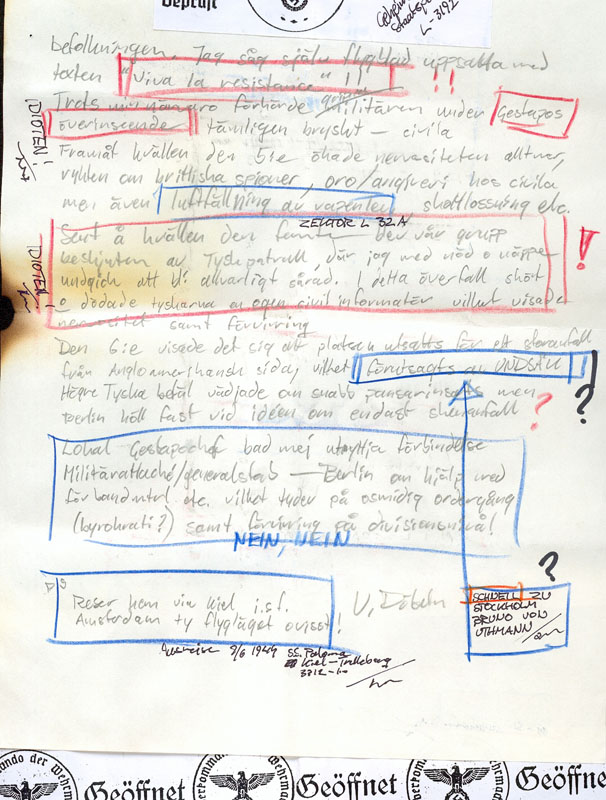 Geprüft
Geheim
Staatspol
L-3192
befolkningen. Jag såg själv flygblad uppsatta med
texten "Viva la resistance"!! !!
Trots förhörde Militären under Gestapos
överinseende tämligen bryskt – civila
IDIOTEN!
Framåt kvällen den 5:e ökade nervositeten alltmer,
rykten om brittiska spioner, oro/angiveri hos civila
men även luftfällning av vapenlen skottlossning etc.
L 32 A
Sent å kvällen den femte blev vår grupp
beskjuten av Tysk patrull, där jag med nöd o näppe
undgick att bli allvarligt sårad. I detta överfall sköt
IDIOTEN!
o dödade tyskarna en egen civil informatör vilket visade
nervositet samt förvirring
!
Den 6:e visade det sig att platsen utsatts för ett storanfall
från Angloamerikansk sida, vilket förutsagts av UNDSÄK
Högre Tyska befäl vädjade om snabb pansarinsats men
Berlin höll fast vid idéen om endast skenanfall
? ?
Lokal Gestapochef bad mej utnyttja förbindelse
Militärattaché/generalstab – Berlin om hjälp med
förbandsmtrl etc. vilket tyder på osmidig ordergång
(byrokrati?) samt förvirring på divisionsnivå!
NEIN, NEIN
?
Reser hem via Kiel i.s.f.
Amsterdam ty flygläget ovisst!
V. Döbeln
SCHNELL ZU
STOCKHOLM
BRUNO VON
UTHMANN
Ausreise 8/6 1944 SS. Paloma
Kiel–Trelleborg
3312-
ando der Wehrm
Geöffnet
erkomma
der Wehrma
Geöffnet
erkommando der Wehrm
Geöffnet